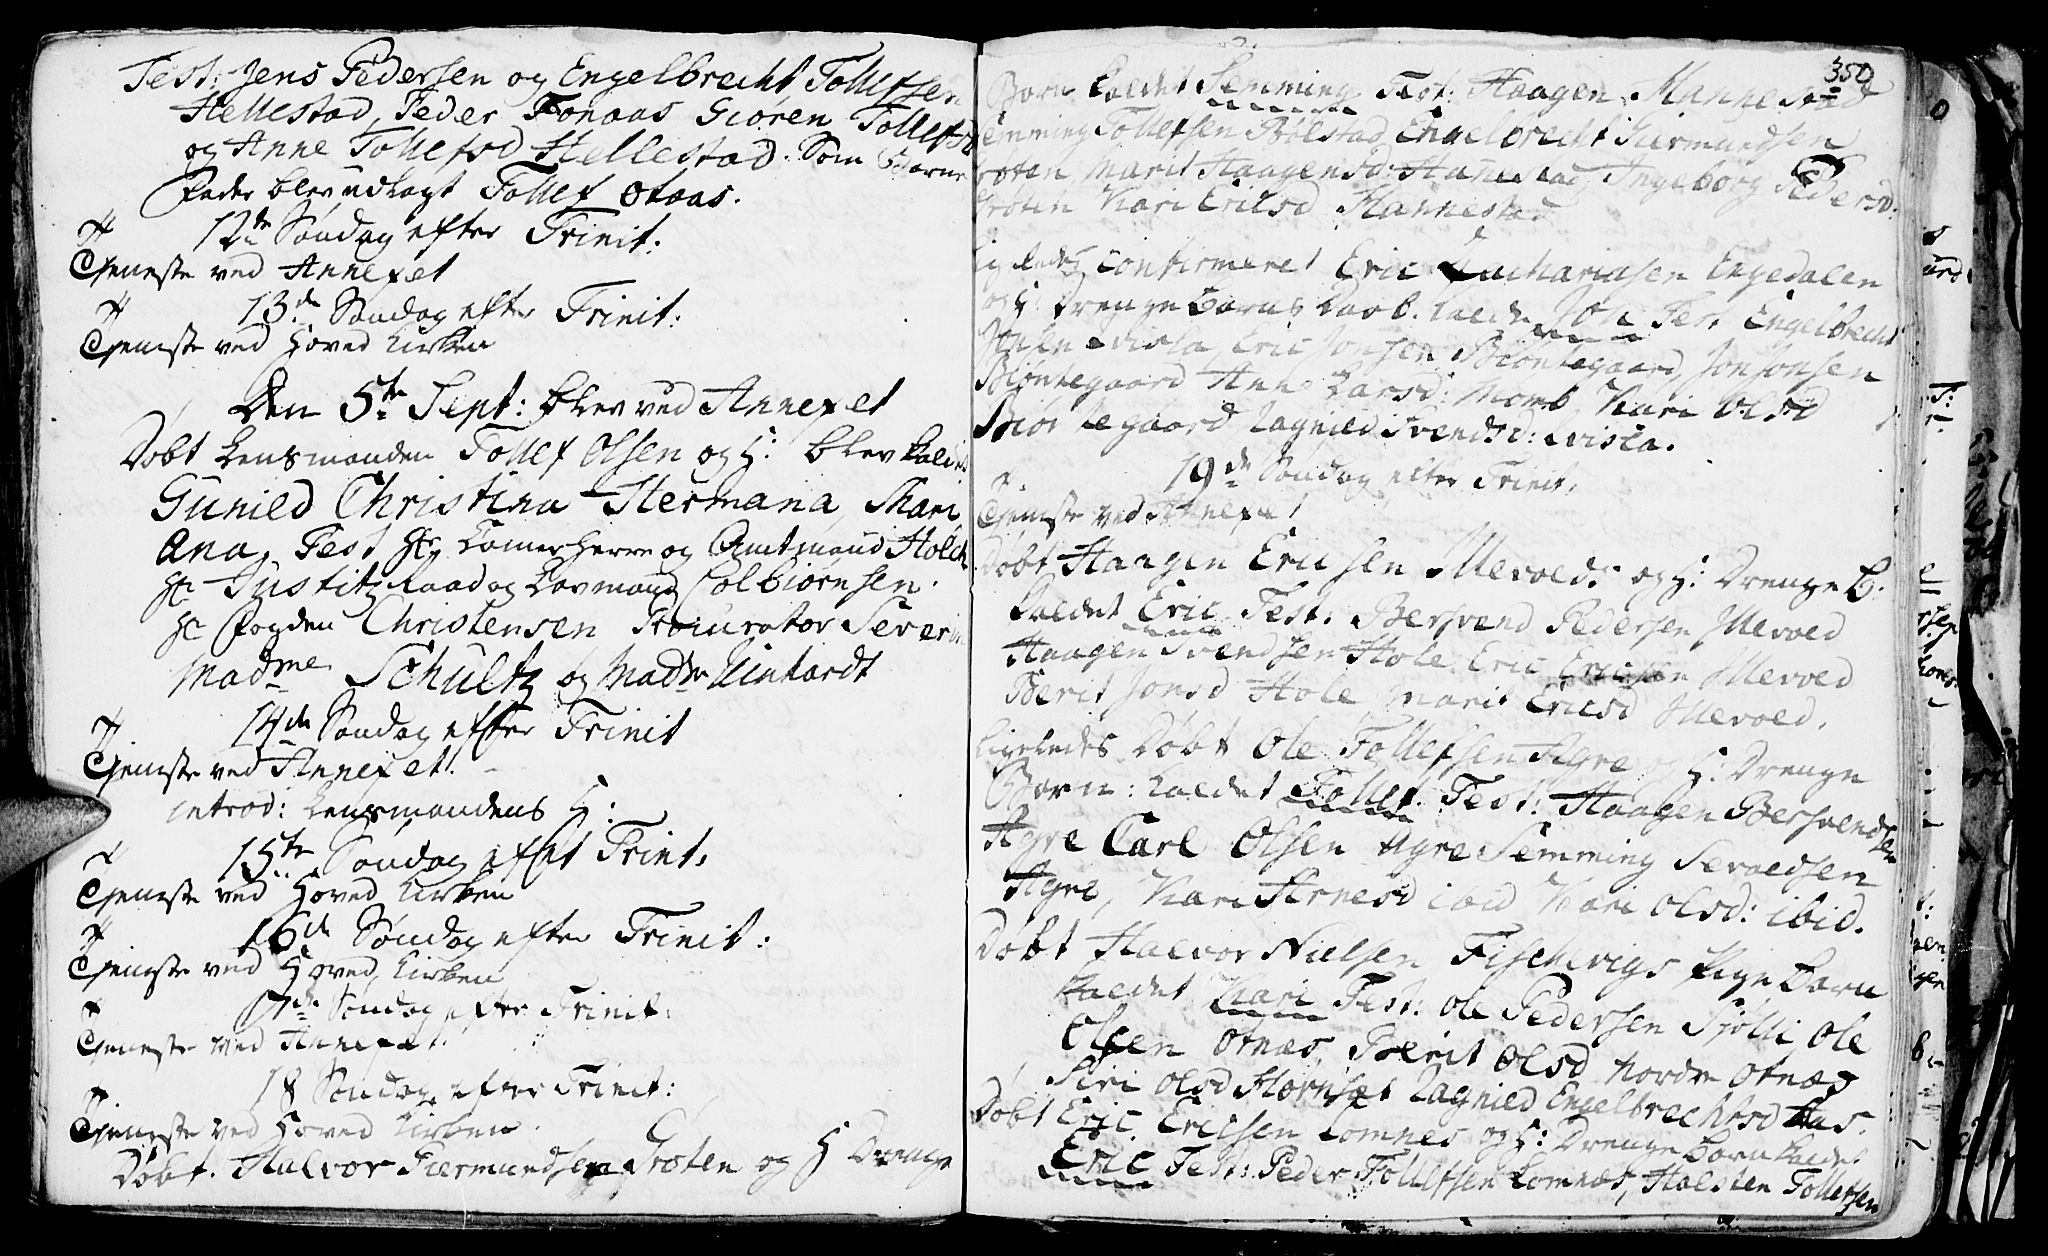 Test: Jens Pedersen og Engelbrecht Tollefsen
Hellestad, Peder Fonaas Giøren Tollefsd
og Anne Tollefsd Hellestad. Som Barne
Fader blev udlagt Tollef Otaas.
12te Søndag efter Trinit:
Tjeneste ved Annexet
13de Søndag efter Trinit:
Tjeneste ved Hoved Kirken
Den 5te Sept: blev ved Annexet
Døbt Lensmanden Tollef Olsen og H: blev kaldet
Gunild Christina Hermana, Mari
Ana, Test Hr Camerherre og Amtmand Holck
Hr Justitz Raad og Lavmand Colbiørnsen.
Hr Fogden Christensen Procurator Severin
Madme Schultz og Madme Linhardt
14de Søndag efter Trinit
Tjeneste ved Annexet.
introd: Lensmandens H:
15te Søndag efter Trint.
Tjeneste ved Hoved Kirken
16de Søndag efter Trinit:
Tjeneste ved Hoved Kirken
17de Søndag efter Trinit:
Tjeneste ved Annexet.
18 Søndag efter Trinit:
Tjeneste ved Hoved Kirken.
Døbt. Halvor Giermundsen Grøten og H Drenge
350
Barn kaldet Semming Test: Haagen Hannestad
Semming Tollefsen Bølstad Engelbrecht Giermundsen
Grøten Marit Haagensd: Hannestad, Ingeborg Pedersd:
Grøten Kari Ericsd Hannestad
Ligeledes Confirmeret Eric Zachariasen Engedalen
og H: Drenge Barns Daab. kaldet Ole Test Engelbrecht
Eric Jonsen Biøntegaard, Jon Jonsen
Biøntegaard Anne Larsd: Momb Kari Olsd
Biøntegaard Ragnild Svendsd: Qvisla.
19de Søndag efter Trinit.
Tjeneste ved Annexet
Døbt Haagen Ericsen Mevold og H: Drenge B:
kaldet Eric Test: Bersvend Pedersen Mevold
Haagen Svendsen Hole Eric Ericsen Mevold
Berit Jonsd Hole Marit Ericsd Mevold.
Ligeledes Døbt Ole Tollefsen Agre og H: Drenge
Barn: kaldet Tollef. Test: Haagen Bersvendsen
Agre Carl Olsen Agre Semming Sevoldsen
Agre, Kari Arnesd ibid Kari Olsd: ibid.
Døbt Halvor Nielsen Fischvigs Pige Barn
kaldet Kari Test: Ole Pedersen Sjølli Ole
Olsen Otnæs, Berit Olsd Nordre Otnæs
Siri Olsd Hornset Ragnild Engelbrechtsd Aas.
Døbt Eric Ericsen Lomnes og H: Drenge Barn kaldet
Eric Test: Peder Tollefsen Lomnæs, Halsten Tollefsen